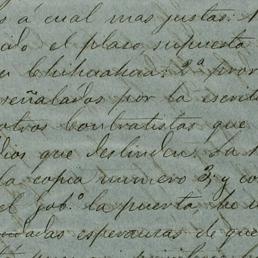 s á cual mas justas: 
cido el plazo supuesto
Chihuahua: 2ª pror
señalados por la escrit
otros Contratistas que
dios que deslinden. La
la copia numero 3, y co
el Gobº la puerta, he
adas esperanzas de que